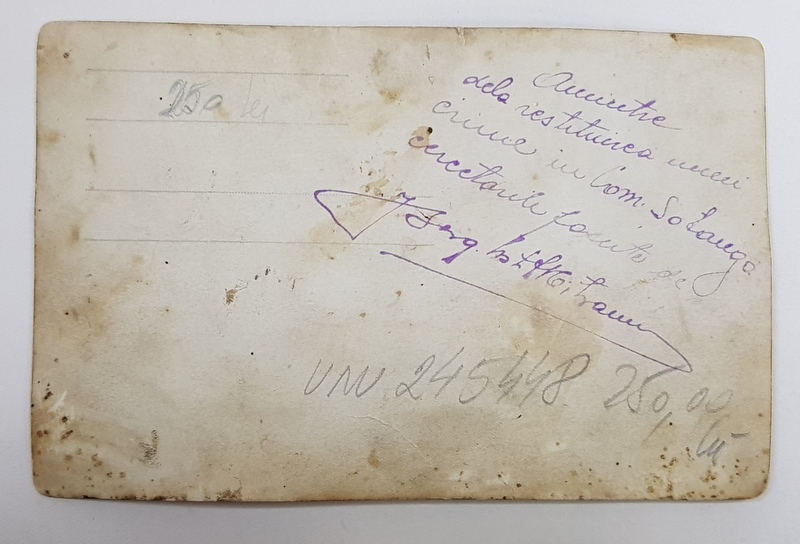 250 lei
Amintire
dela restituirea unei
crime in Com. Sotanga
cercetarile facute de
Serg.
UNU 245448 250,00
lei